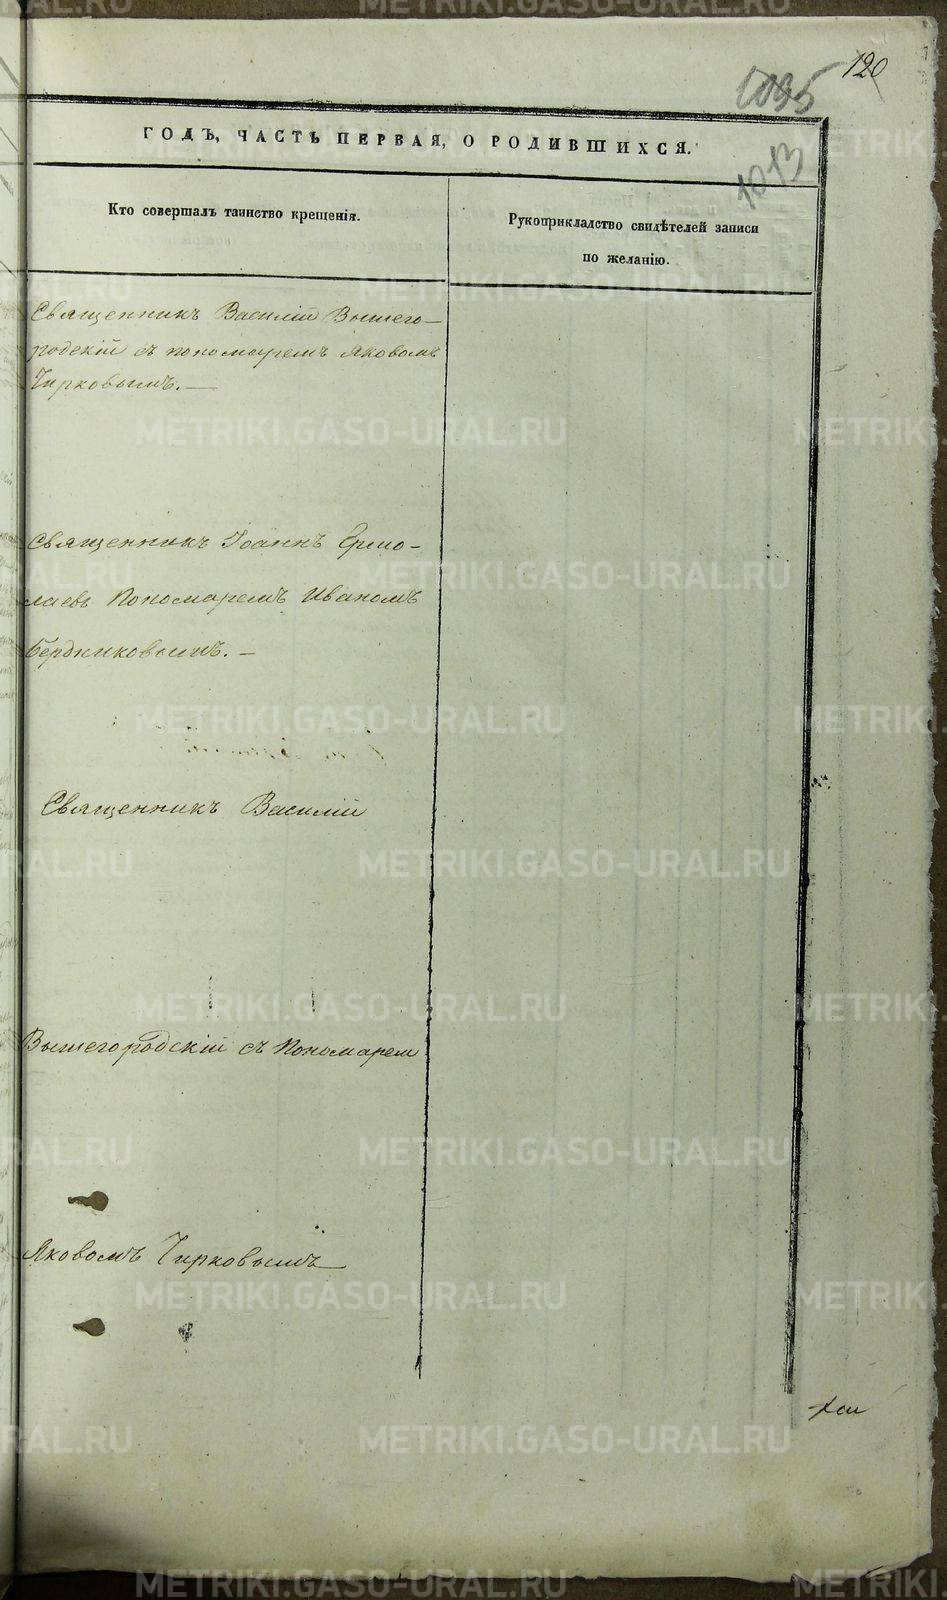 120
1035
1013
ГОДЪ, ЧАСТЬ ПЕРВАЯ, О РОДИВШИХСЯ.
Кто совершалъ таинство крещенія.
Рукоприкладство свидѣтелей записи
по желанію.
Священникъ Василій Вышего-
родскій съ пономаремъ Яковомъ
Чирковымъ. —
Священникъ Іоаннъ Ермо-
лаевъ Пономаремъ Иваномъ
Бердниковымъ. —
Священникъ Василій
Вышегородскій съ Пономарем
Яковомъ Чирковымъ
METRIKI.GASO-URAL.RU